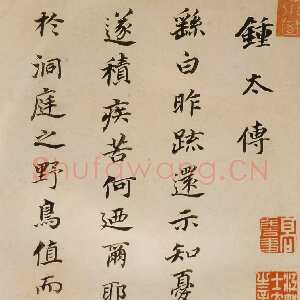 鍾太傅
繇白昨疏還示知憂
遂積疾苦何迺爾耶
於洞庭之野鳥值而
Shufawang.CN